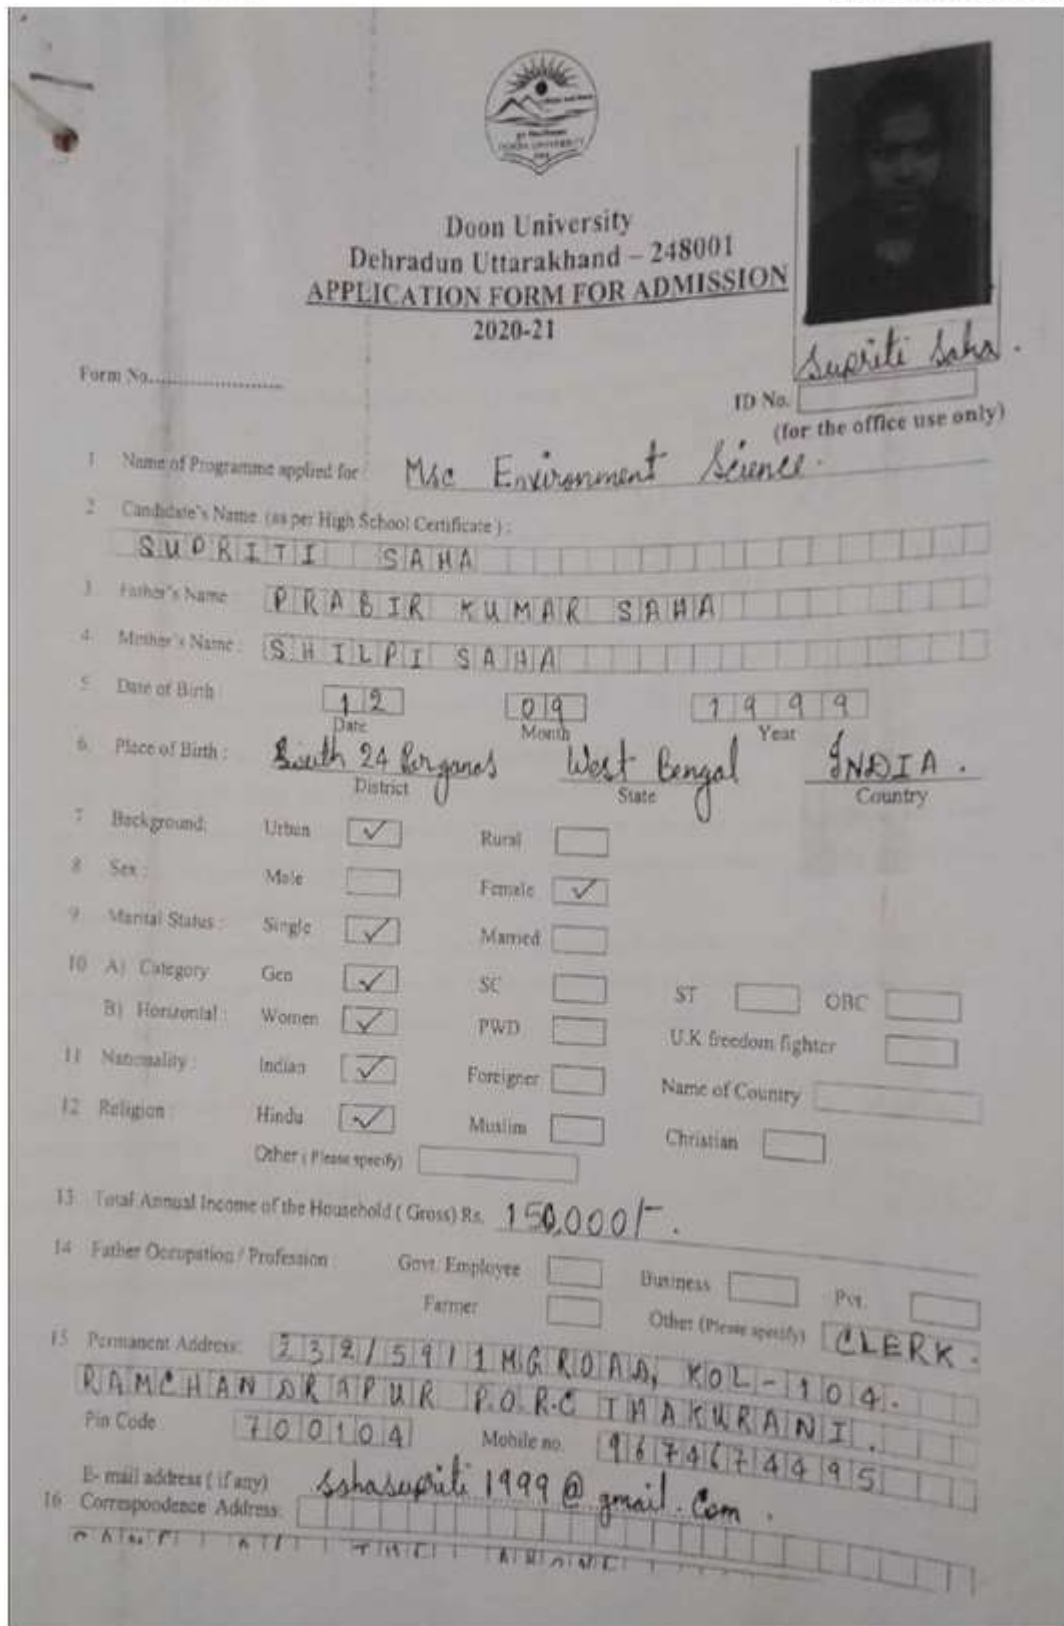 DOON UNIVERSITY
Doon University
Dehradun Uttarakhand – 248001
APPLICATION FORM FOR ADMISSION
2020-21
Supriti Saha.
Form No........................
ID No.
(for the office use only)
1 Name of Programme applied for : Msc Environment Science.
2 Candidate's Name (as per High School Certificate) :
SUPRITI SAHA
3. Father's Name PRABIR KUMAR SAHA
4. Mother's Name : SHILPI SAHA
5. Date of Birth : 12 09 1999
Date Month Year
6. Place of Birth : South 24 Parganas West Bengal INDIA.
District State Country
7 Background: Urban ✓ Rural
8 Sex : Male Female ✓
9 Marital Status : Single ✓ Married
10 A) Category Gen ✓ SC ST OBC
B) Horizontal : Women ✓ PWD U.K freedom fighter
11 Nationality : Indian ✓ Foreigner Name of Country
12 Religion : Hindu ✓ Muslim Christian
Other (Please specify)
13 Total Annual Income of the Household ( Gross) Rs. 150,000/-.
14 Father Occupation / Profession : Govt. Employee Business Pvt.
Farmer Other (Please specify) CLERK.
15 Permanent Address: 232/59/1 MG ROAD, KOL-104.
RAMCHANDRAPUR P.O.R.C THAKURANI.
Pin Code 700104 Mobile no. 9674674495
E- mail address ( if any) sahasupriti1999@gmail.com.
16 Correspondence Address: